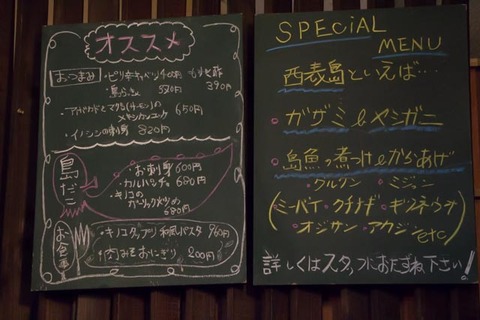 オススメ
おつまみ
・ピリ辛キャベツ 400円
もずく酢
390円
・島らっきょ 550円
・アボカドとマグロ(サーモン)の
メキシカンユッケ 650円
・イノシシの刺身 820円
島だこ
・お刺身 600円
・カルパッチョ 680円
・キノコの
ガーリック炒め
680円
お食事
・キノコタップリ和風パスタ 960円
・肉みそおにぎり 200円
SPECiAL
MENU
西表島といえば…
・ガザミ & ヤシガニ
・島魚っ煮つけ & からあげ
・グルクン ・ミジュン
(ミーバイ・クチナギ・ギツネウオ
・オジサン・アカジン etc)
詳しくはスタッフにおたずね下さい!